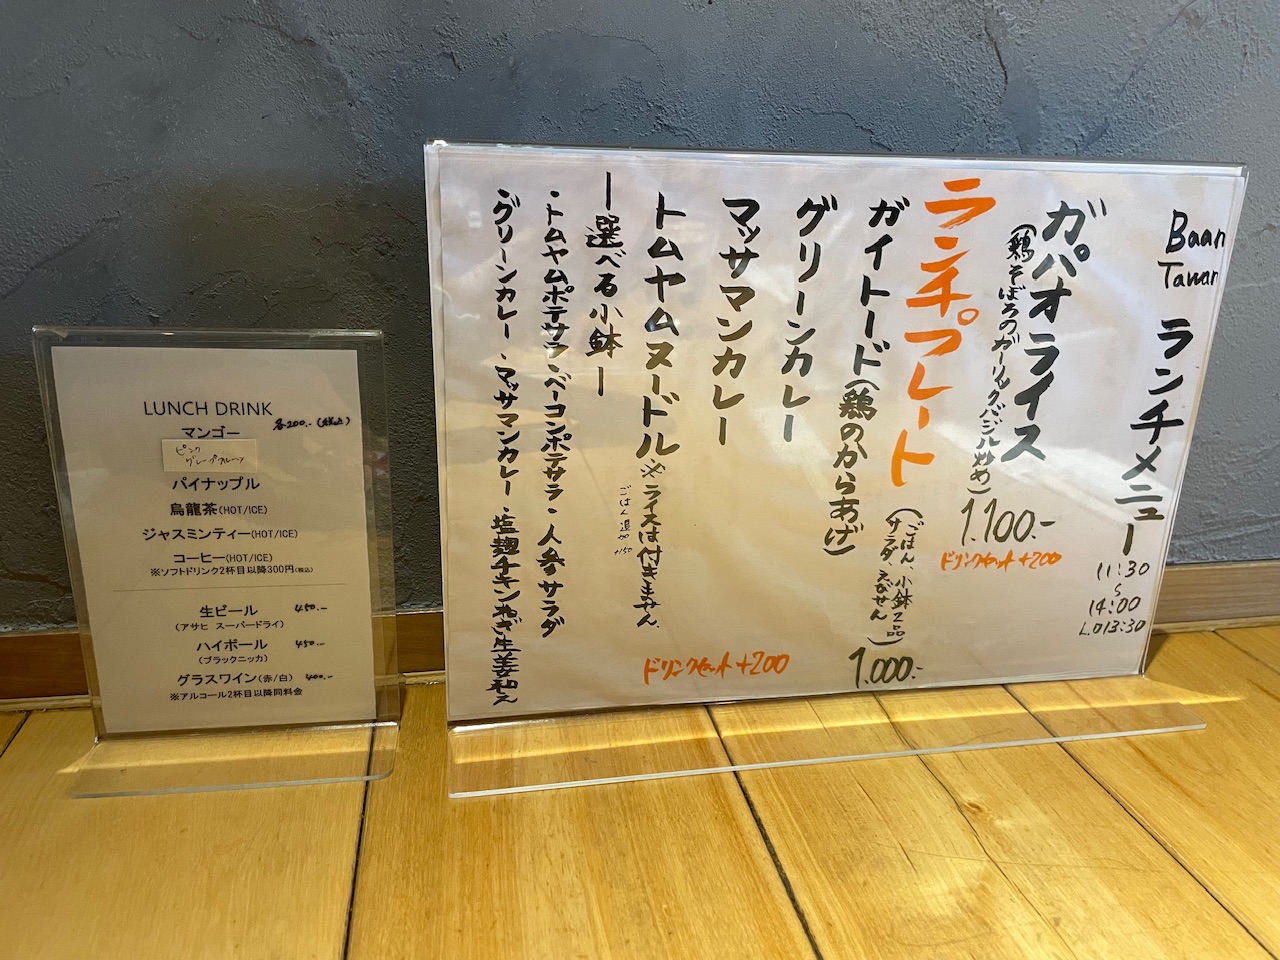 LUNCH DRINK
各200.-(税込)
マンゴー
ピンク
グレープフルーツ
パイナップル
烏龍茶(HOT/ICE)
ジャスミンティー(HOT/ICE)
コーヒー(HOT/ICE)
※ソフトドリンク2杯目以降300円(税込)
生ビール 450.-
(アサヒ スーパードライ)
ハイボール 450.-
(ブラックニッカ)
グラスワイン(赤/白) 400.-
※アルコール2杯目以降同料金
Baan
Tawan
ランチメニュー
11:30
〜
14:00
L.O 13:30
ガパオライス
(鶏そぼろのガーリックバジル炒め)
1.100.-
ドリンクセット+200
ランチプレート
(ごはん、小鉢2品
サラダ、えびせん)
1.000.-
ガイトード(鶏のからあげ)
グリーンカレー
マッサマンカレー
ドリンクセット+200
トムヤムヌードル ※ライスは付きません。
ごはん追加+150
ー選べる小鉢ー
・トムヤムポテサラ・ベーコンポテサラ・人参サラダ
・グリーンカレー・マッサマンカレー・塩麹チキンねぎ生姜和え